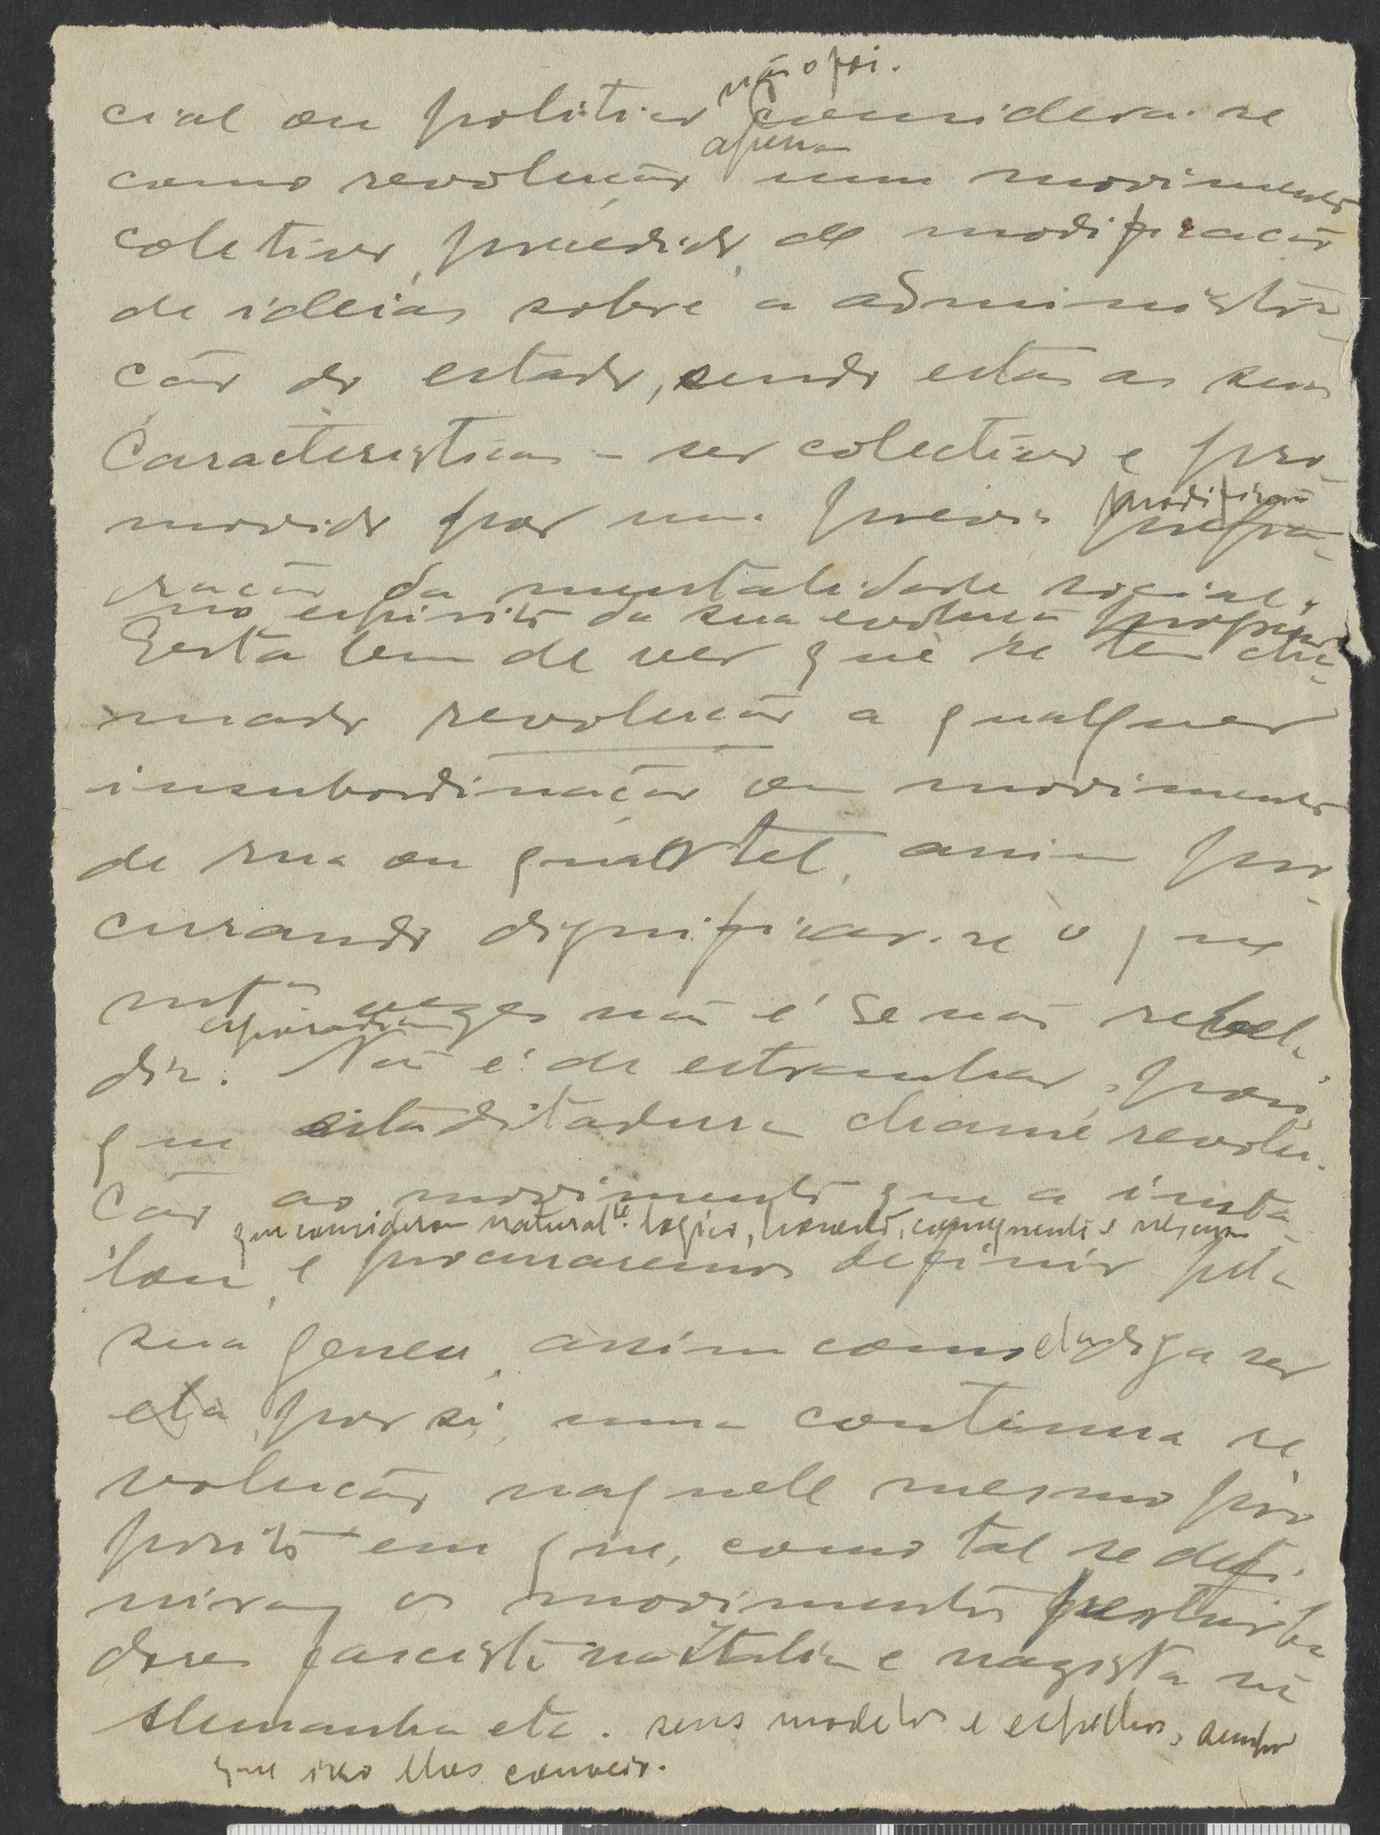 não foi.
cial ou politico considera-se
apenas
como revolução um movimento
coletivo, precedido, de modificação
de ideias sobre a administra-
ção do estado, sendo estas as suas
características - ser colectivo e pro-
movido por uma previa
modificação
prepa-
ração da mentalidade social,
no espirito da sua evolução
Está bem de ver que se tem cha-
mado revolução a qualquer
insubordinação ou movimento
de rua ou quartel, assim pro-
curando dignificar-se o que
muitas vezes não é senão rebel-
esporadica
dia. Não é de estranhar, pois,
que esta ditadura chame revolu-
ção ao movimento que a insta-
que consideram natural te. logico, honesto, consequente e
lou, e procuraremos definir pela
sua genese, assim como ela diga ser
ela, por si, uma continua re
volução naquele mesmo pro
posito em que, como tal se defi-
niram os movimentos perturba
dores fascista na Italia e nazista na
Alemanha etc. seus modelos e espelhos, sempre
que isso lhes convem.